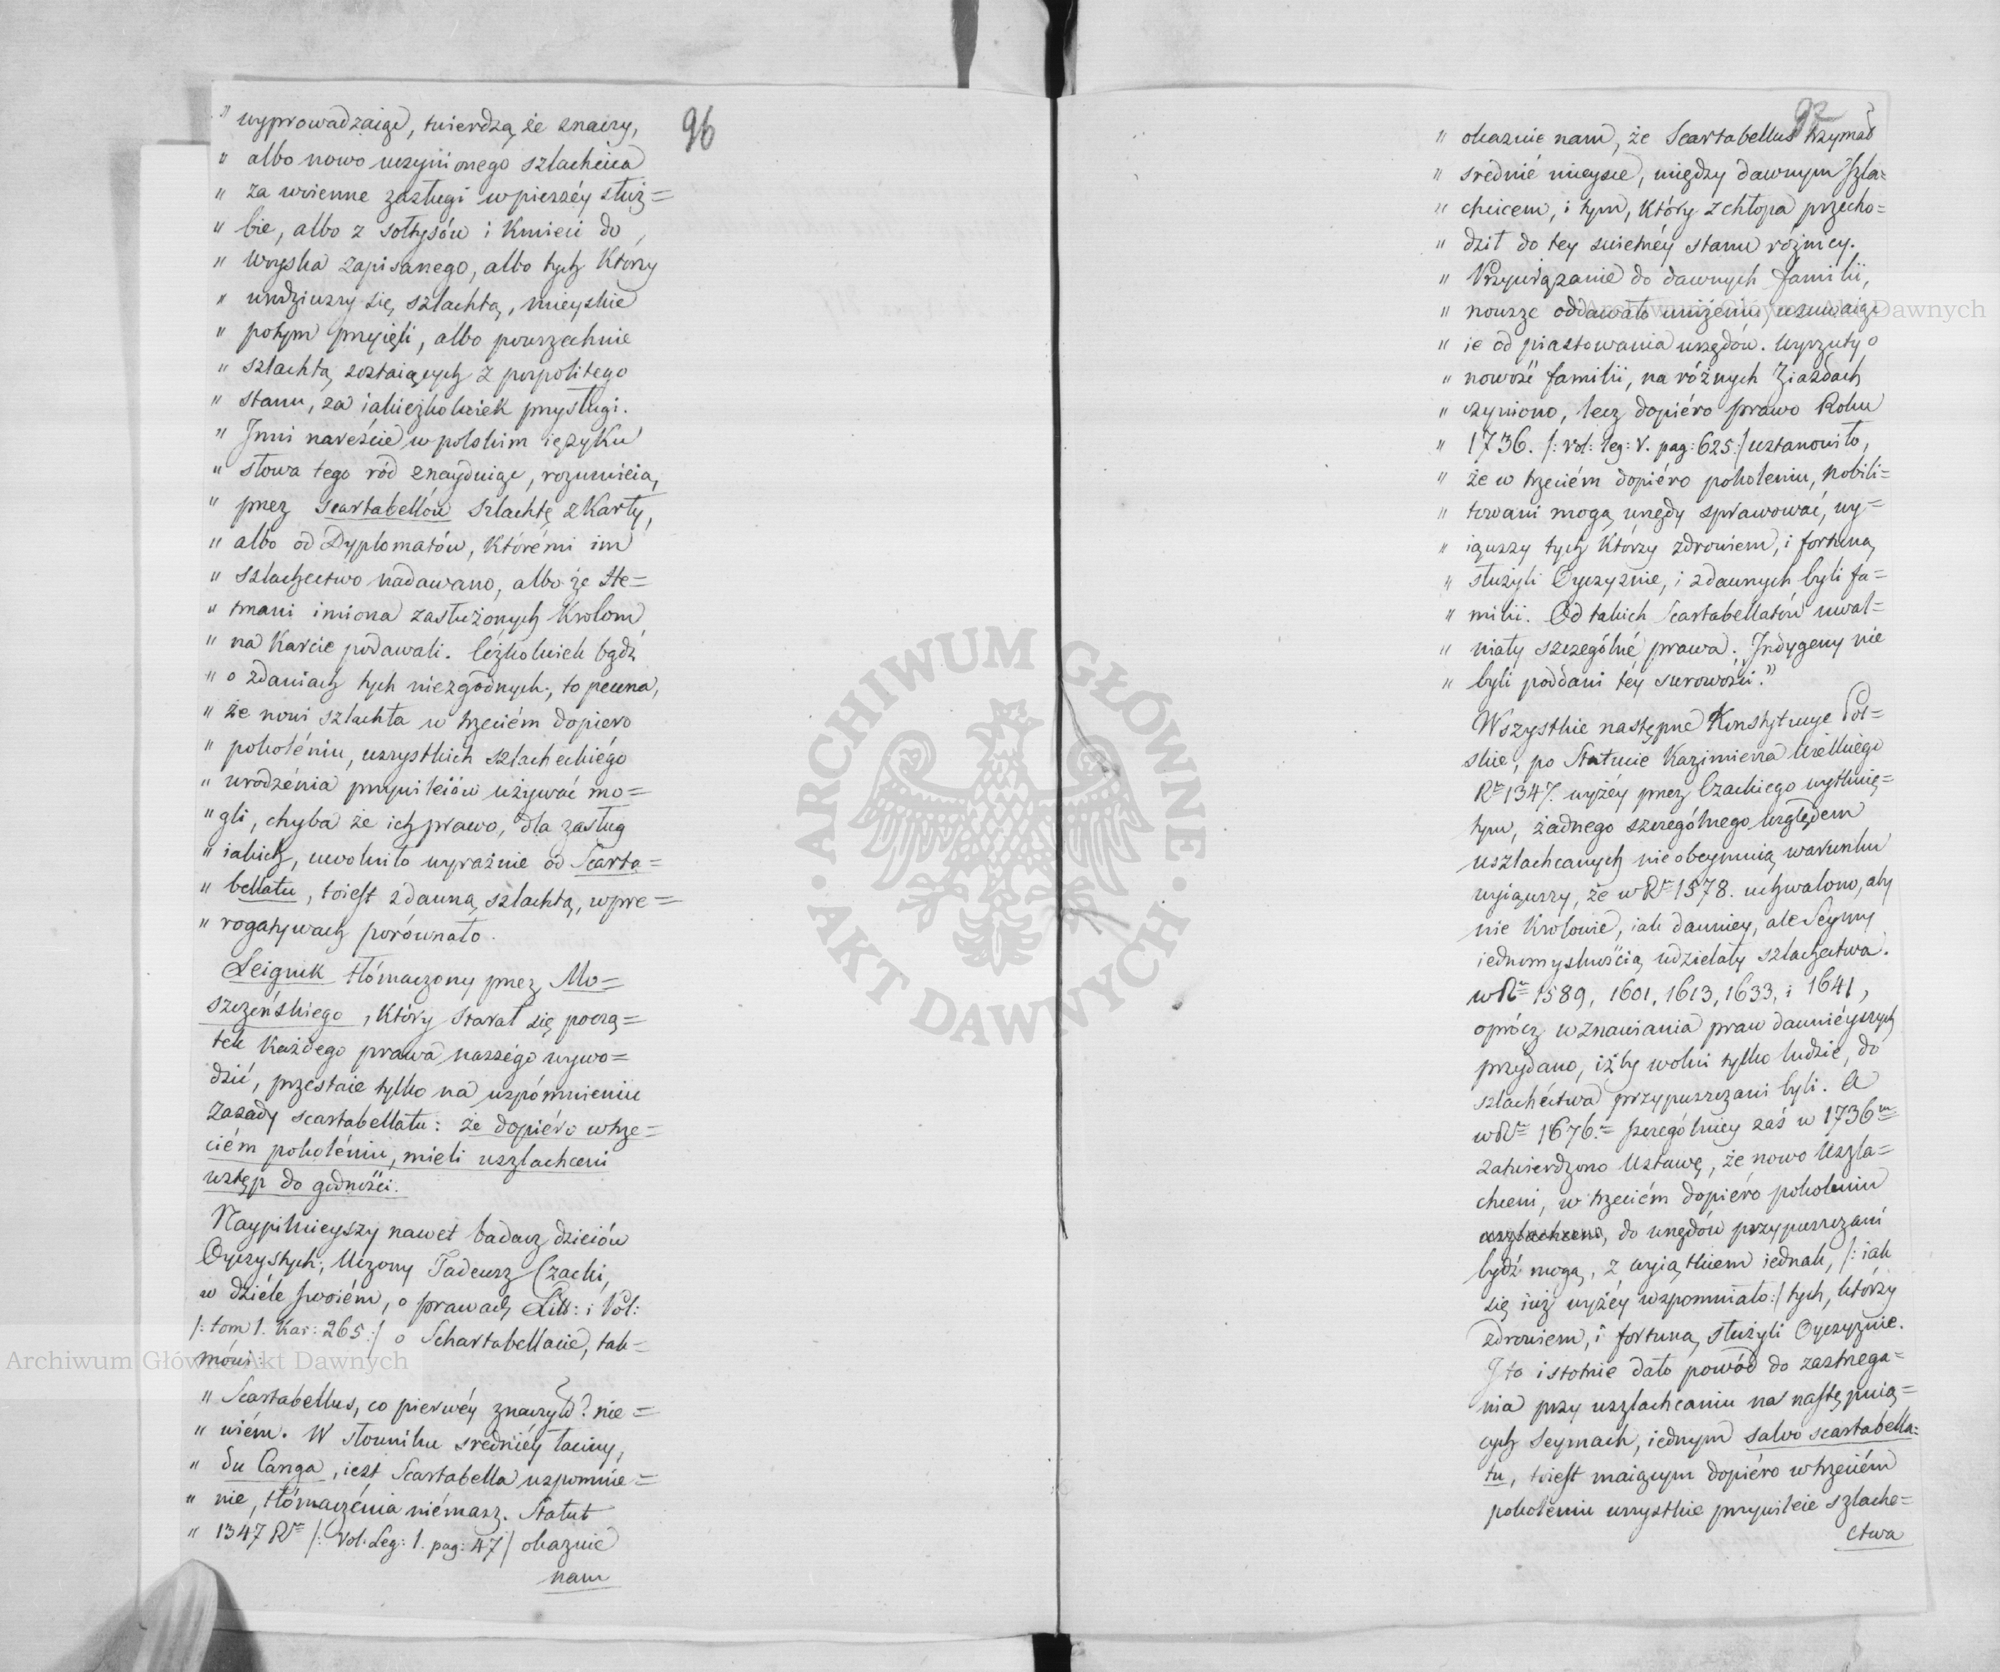 96
" wyprowadzaiąc, twierdzą że znaczy,
" albo nowo uczynionego szlachcica
" za woienne zasługi w pierszéy służ=
" bie, albo z sołtysów i Kmieci do
" Woyska zapisanego, albo tych Którzy
" urodziwszy się szlachtą, mieyskie
" potym przyięli, albo powszechnie
" szlachtą zostaiących z pospolitego
" stanu, za iakieżkolwiek przysługi.
" Inni nareście w polskim ięzyku
" słowa tego ród znayduiąc, rozumieią,
" przez scartabellów szlachtę z Karty,
" albo od Dyplomatów, którémi im
" szlachectwo nadawano, albo że He=
" tmani imiona zasłużonych Krolom
" na Karcie podawali. Cóżkolwiek bądź
" o zdaniach tych niezgodnych, to pewna,
" że nowi szlachta w trzeciém dopiero
" pokoléniu, wszystkich szlacheckiégo
" urodzénia przywileiów używać mo=
" gli, chyba że ich prawo, dla zasług
" iakich, uwolniło wyraźnie od Scarta=
" bellatu, toiest z dawną szlachtą, w pre=
" rogatywach porównało.
Leignik tłómaczony przez Mo=
szczeńskiego, który starał się począ=
tek każdego prawa naszégo wywo=
dzić, przestaie tylko na wspómnieniu
zasady scartabellatu: że dopiéro w trze=
ciém pokoléniu, mieli uszlachceni
wstęp do godności.
Naypilnieyszy nawet badacz dzieiów
Oyczystych, Uczony Tadeusz Czacki,
w dziéle swoiém, o prawach Litt: i Pol:
/: tom 1. Kar: 265 :/ o Schartabellacie, tak=
mówi:
" Scartabellus, co pierwéy znaczył? nie=
" wiém. W słowniku średniéy łaciny,
" du Canga, iest Scartabella wspomnie=
" nie, tłómaczénia niémasz. Statut
" 1347 Ru /: Vol. Leg: 1. pag: 47 / okazuie
nam
97
" okazuie nam, że Scartabellus trzymał
" srednié mieysce, między dawnym szla=
" chcicem, i tym, który z chłopa przecho=
" dził do tey swietnéy stanu różnicy.
" Przywiązanie do dawnych familii,
" nowsze oddawało uniżeniu, usuwaiąc
" ie od piastowania urzędów. Wyrzuty o
" nowość familii, na różnych Ziazdach
" czyniono, lecz dopiéro prawo Roku
" 1736. /: vol: leg: V. pag: 625 :/ ustanowiło,
" że w trzeciém dopiéro pokoleniu, Nobili=
" towani mogą urzędy sprawować, wy=
" iąwszy tych którzy zdrowiem, i fortuną
" służyli Oyczyznie, i z dawnych byli fa=
" milii. Od takich Scartabellatów uwal=
" niały szczególné prawa. Indygeny nie
" byli poddani téy surowości."
Wszystkie następne Konstytucye Pol=
skie, po Statucie Kazimierza Wielkiégo
Ru 1347. wyżéy przez Czackiego wytknię=
tym, żadnego szczególnego względem
uszlachcanych nie obeymuią warunku
wyiąwszy, że w Ru 1578. uchwalono, aby
nie Krolowie, iak dawniey, ale Seymy
iednomyslnością udzielały szlachectwa.
w Ru 1589, 1601, 1613, 1633, i 1641,
oprócz wznawiania praw dawniéyszych
przydano, iżby wolni tylko ludzie, do
szlachéctwa przypuszczani byli. A
w Ru 1676. szczególniey zaś w 1736m
zatwierdzono Ustawę, że nowo Uszla=
chceni, w trzeciém dopiéro pokoleniu
do urzędów przypuszczani
bydź mogą, z wyiątkiem iednak, /: iak
się iuż wyżéy wspomniało :/ tych, którzy
zdrowiem, i fortuną służyli Oyczyznie.
I to istotnie dało powód do zastrzega=
nia przy uszlachcaniu na następuią=
cych Seymach, iednym salvo scartabella=
tu, toiest maiącym dopiéro w trzeciém
pokoleniu wszystkie przywileie szlache=
ctwa
ARCHIWUM GŁÓWNE AKT DAWNYCH
Archiwum Główne Akt Dawnych
Archiwum Główne Akt Dawnych